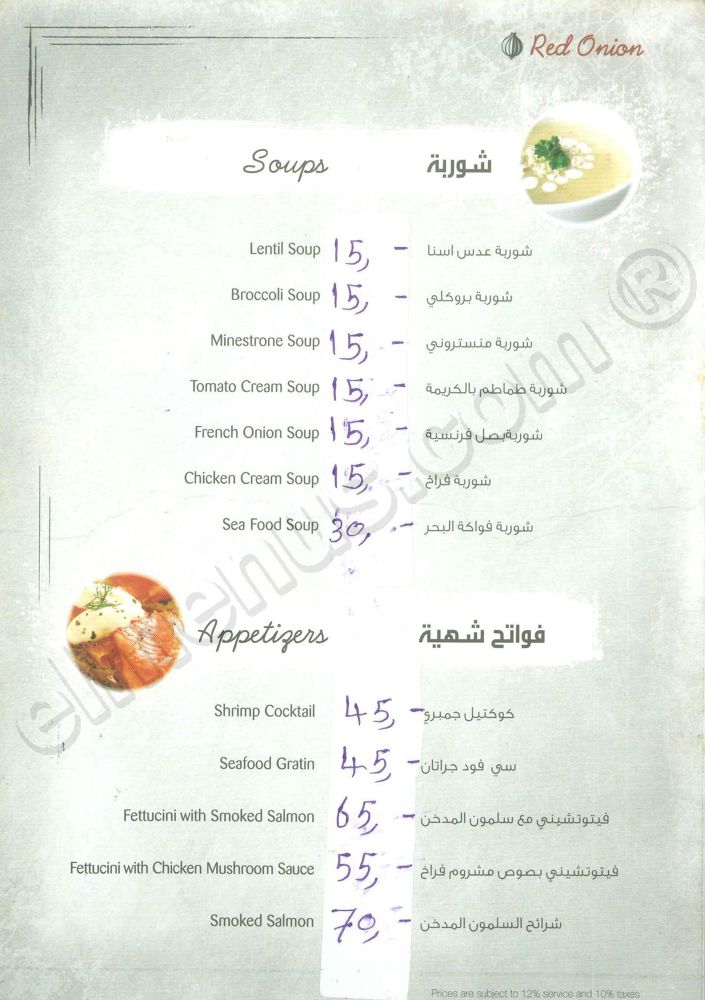 Red Onion
Soups شوربة
Lentil Soup 15,- شوربة عدس اسنا
Broccoli Soup 15,- شوربة بروكلي
Minestrone Soup 15,- شوربة منستروني
Tomato Cream Soup 15,- شوربة طماطم بالكريمة
French Onion Soup 15,- شوربةبصل فرنسية
Chicken Cream Soup 15,- شوربة فراخ
Sea Food Soup 30,- شوربة فواكة البحر
Appetizers فواتح شهية
Shrimp Cocktail 45,- كوكتيل جمبرو
Seafood Gratin 45,- سي فود جراتان
Fettucini with Smoked Salmon 65,- فيتوتشيني مع سلمون المدخن
Fettucini with Chicken Mushroom Sauce 55,- فيتوتشيني بصوص مشروم فراخ
Smoked Salmon 70,- شرائح السلمون المدخن
Prices are subject to 12% service and 10% taxes
elmenus.com ®